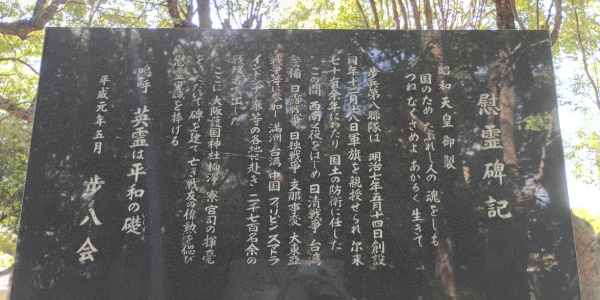 慰霊碑記
昭和天皇御製
国のため たふれし人の 魂をしも
つねなぐさめよ あかるく生きて
歩兵第八聯隊は 明治七年五月十四日創設
同年十二月十八日軍旗を親授せられ 尓来
七十有余年にわたり 国土の防衛に任じた
この間 西南の役をはじめ 日清戦争 台湾
警備 日露戦争 日独戦争 支那事変 大東亜
戦争等に参加し 満洲 台湾 中国 フィリピン スマトラ
インドシナ 泰 等の各地に赴き 二千七百名余の
戦歿者を出した
ここに 大阪護国神社 宮司の揮毫
をいただいて 碑を建て 亡き戦友の偉勲を偲び
慰霊の誠を捧げる
英霊は平和の礎
平成元年五月
歩八会